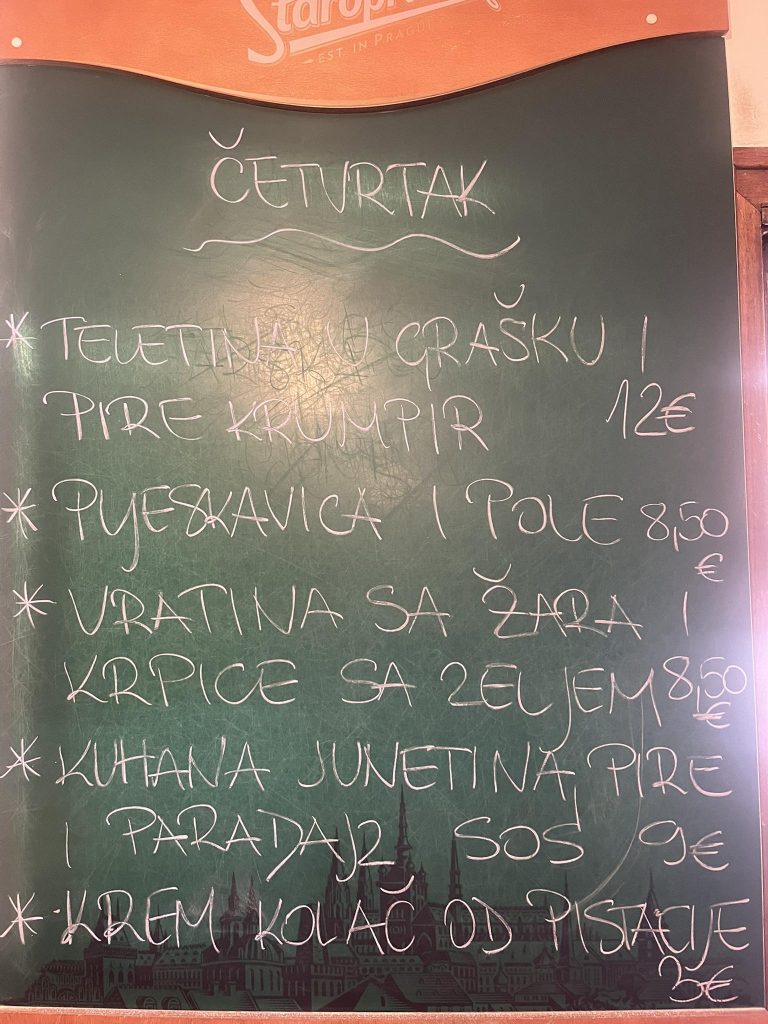 Staropr
EST. IN PRAGUE
ČETVRTAK
* TELETINA U GRAŠKU I
PIRE KRUMPIR 12€
* PLJESKAVICA I POLE 8,50
€
* VRATINA SA ŽARA I
KRPICE SA ZELJEM 8,50
€
* KUHANA JUNETINA, PIRE
I PARADAJZ SOS 9€
* KREM KOLAČ OD PISTACIJE
3€